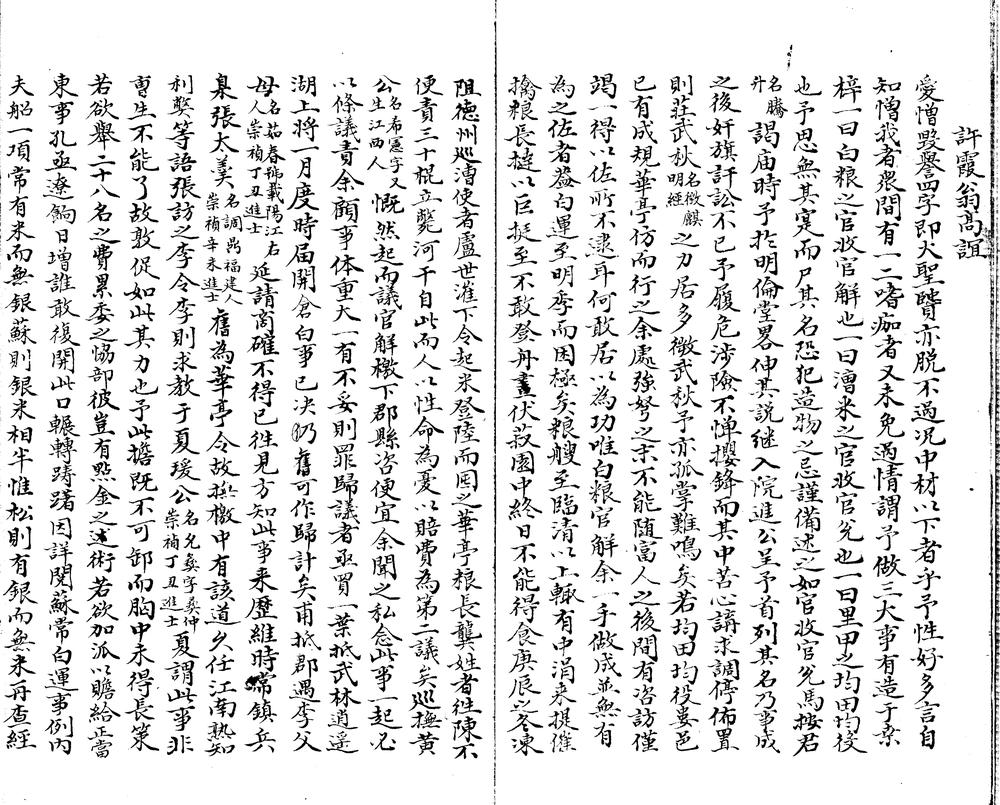 許霞翁高誼
愛憎毀譽四字即大聖賢亦脫不過况中材以下者乎予性好多言自
知憎我者衆間有一二嗜痂者又未免過情謂予做三大事有造于桑
梓一曰白粮之官收官解也一曰漕米之官收官兌也一曰里甲之均田均役
也予思無其寔而尸其名恐犯造物之忌謹備述之如官收官兌馬按君
名騰升謁廟時予於明倫堂畧伸其說継入院進公呈予首列其名乃事成
之後奸旗訐訟不已予履危涉險不憚攖鋒而其中苦心講求調停佈置
則莊武秋名徵麒明經之力居多微武秋予亦孤掌難鳴矣若均田均役婁邑
已有成規華亭仿而行之余處強弩之末不能随富人之後間有咨訪僅
竭一得以佐所不逮耳何敢居以為功唯白粮官解余一手做成並無有
為之佐者蓋白運至明季而困極矣粮艘至臨清以上輙有中涓来提催
擒粮長撻以巨挺至不敢登舟晝伏菽園中終日不能得食庚辰之冬凍
阻德州巡漕使者盧世㴶下令起米登陸而困之華亭粮長龔姓者徃陳不
便責三十棍立斃河干自此而人以性命為憂以賠費為第二議矣巡撫黄
公名希憲字又生江西人慨然起而議官解檄下郡縣咨便宜余聞之私念此事一起必
以條議責余顧事体重大一有不妥則罪歸議者亟買一葉抵武林逍遥
湖上將一月度時届開倉白事已决仍舊可作歸計矣甫抵郡遇李父
母名茹春號載陽江右人崇禎丁丑進士延請商確不得已徃見方知此事来歷維時常鎮兵
臬張太羹名調鼎福建人崇禎辛未進士舊為華亭令故撫檄中有該道久任江南熟知
利獘等語張訪之李令李則求教于夏瑗公名允彝字彝仲崇禎丁丑進士夏謂此事非
曹生不能了故敦促如此其力也予此擔既不可卸而胸中未得長策
若欲舉二十八名之費累委之恊部彼豈有點金之術若欲加派以贍給正當
東事孔亟遼餉日增誰敢復開此口輾轉躊躇因詳閱蘇常白運事例内
夫船一項常有米而無銀蘇則銀米相半惟松則有銀而無米再查經